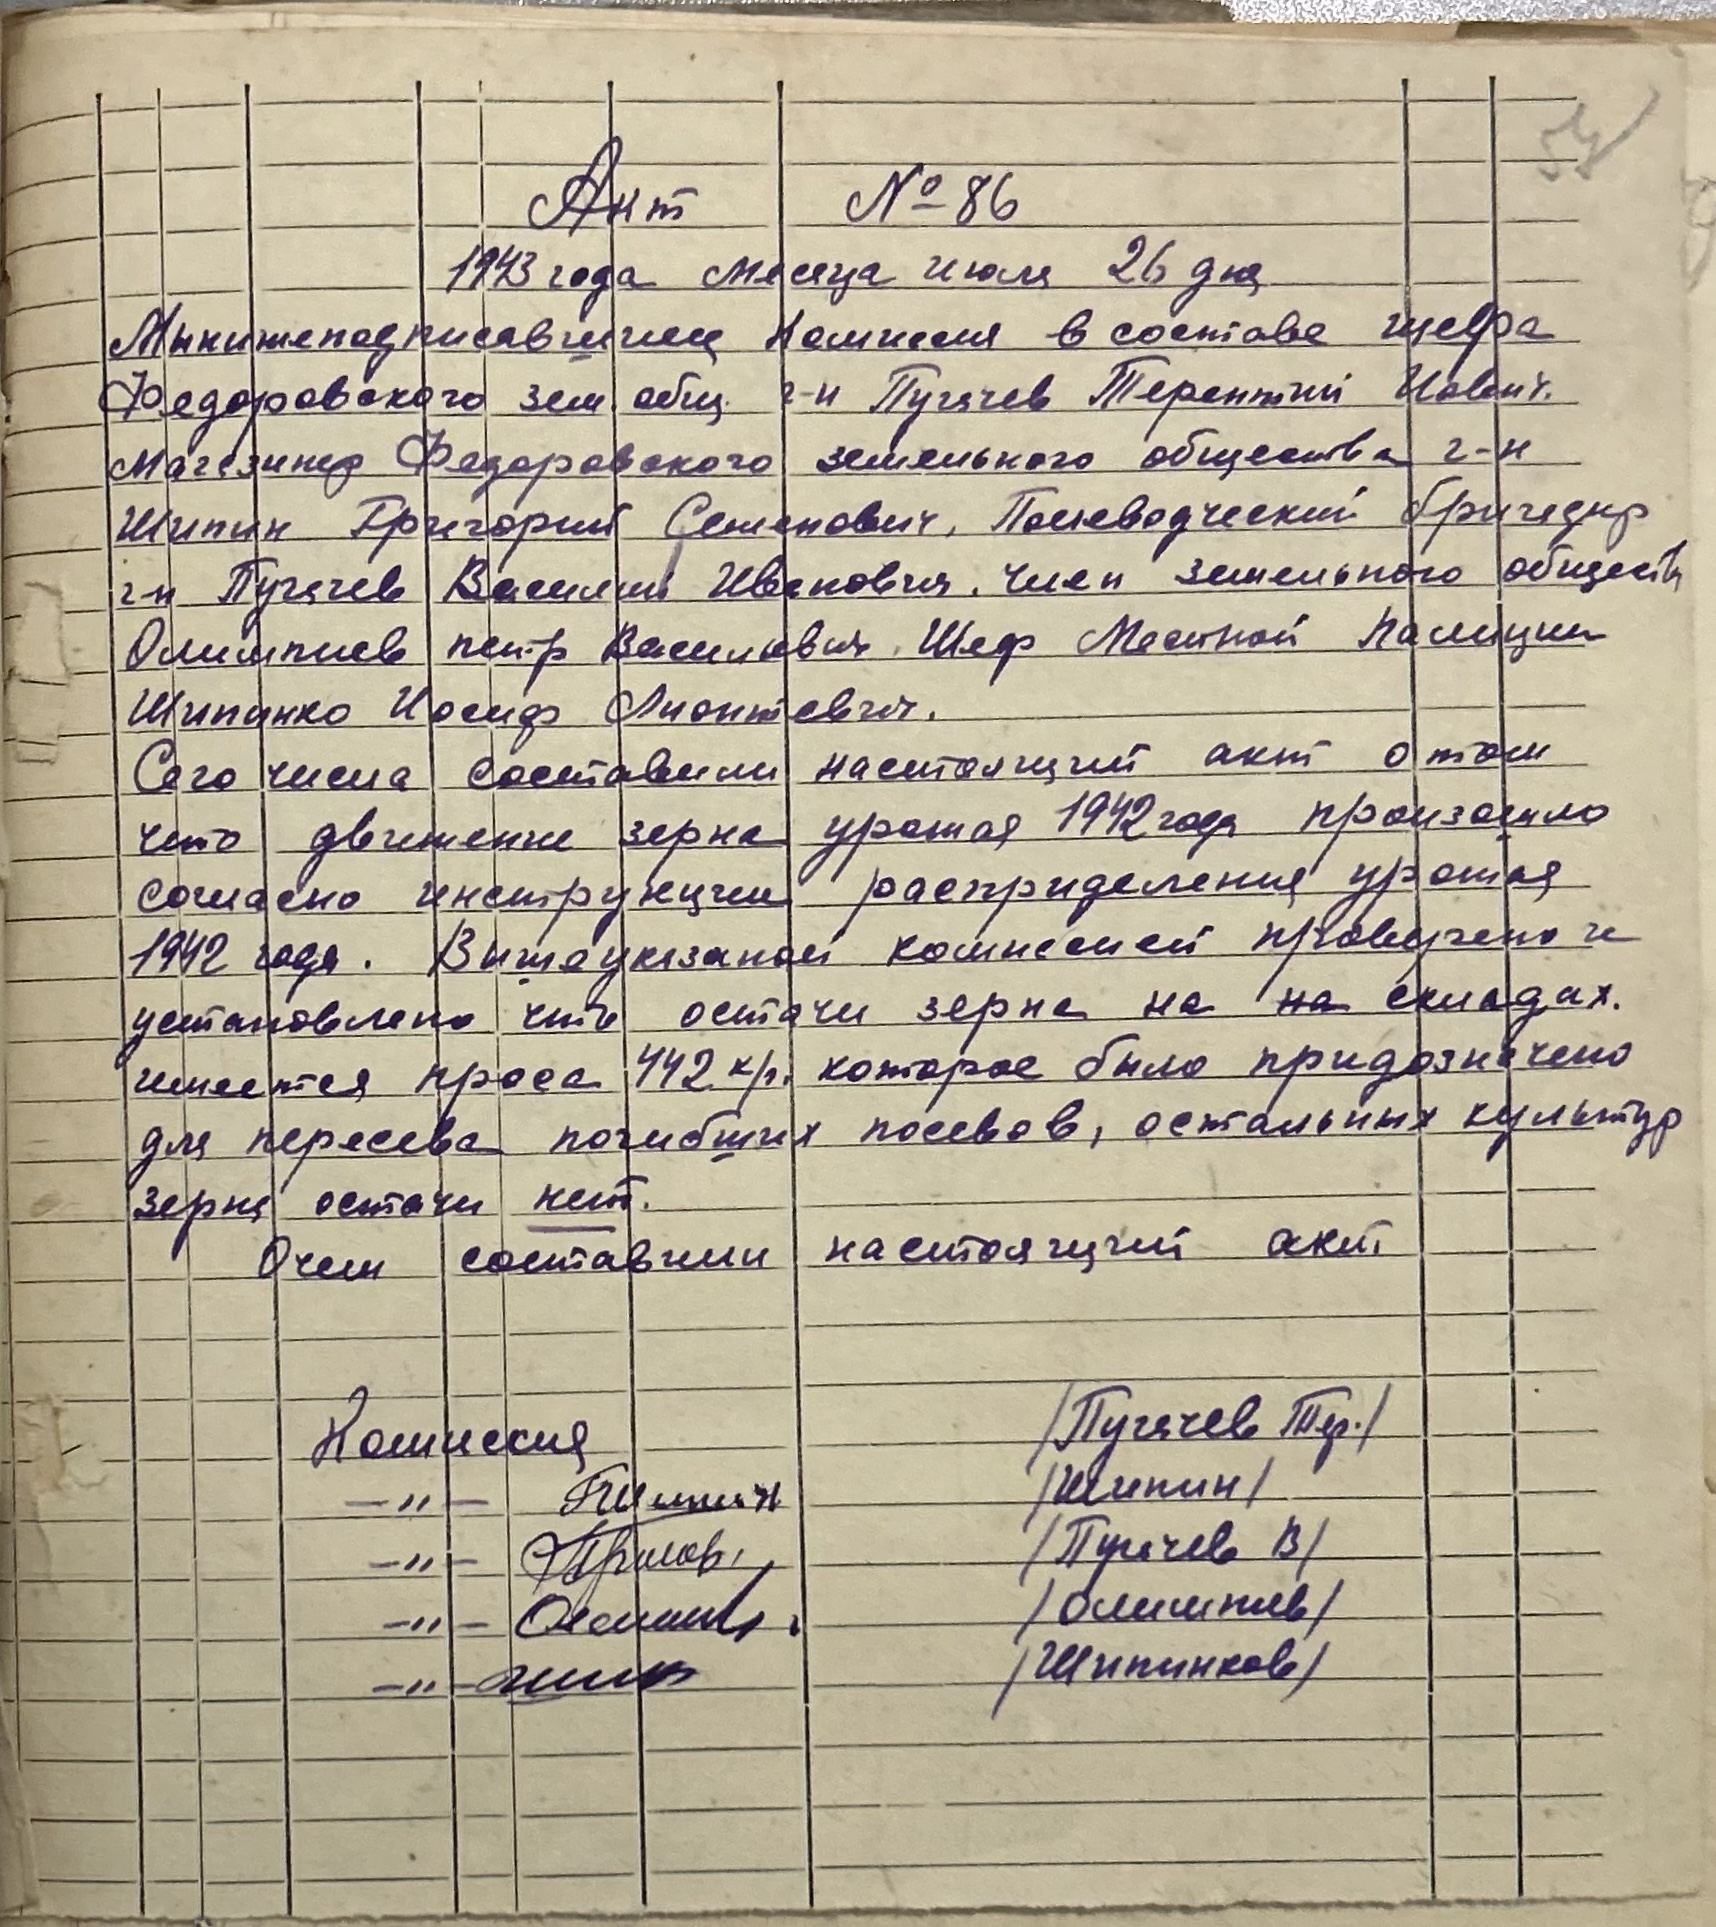 Акт №86
1943 года месяца июля 26 дня
Мынижеподписавшиеся Комиссия в составе шефа
Федоровского зем. общ. г-н Пугачев Терентий
Магазинер Федоровского земельного общества г-н
Шипин Григорий Семенович, Полеводческий бригадир
г-н Пугачев Василий Иванович. Член земельного обществ
Олимпиев петр Васильевич. Шеф Местной Палиции
Шипинко Иосиф Лионтевич.
Сего числа составили настоящий акт о том
что движение зерна урожая 1942 года произошло
согласно инструкции расприделения урожая
1942 года. Вышеуказаной комиссией проверено и
установлено что остачи зерна на на складах.
имеется проса 442 кгр. которое было придозначено
для пересева погибших посевов, остальных культур
зерна остачи нет.
Очем составили настоящий акт.
Комиссия /Пугачев Тер./
—"— /Шипин/
—"— /Пугачев В/
—"— /Олимпиев/
—"— /Шипинков/